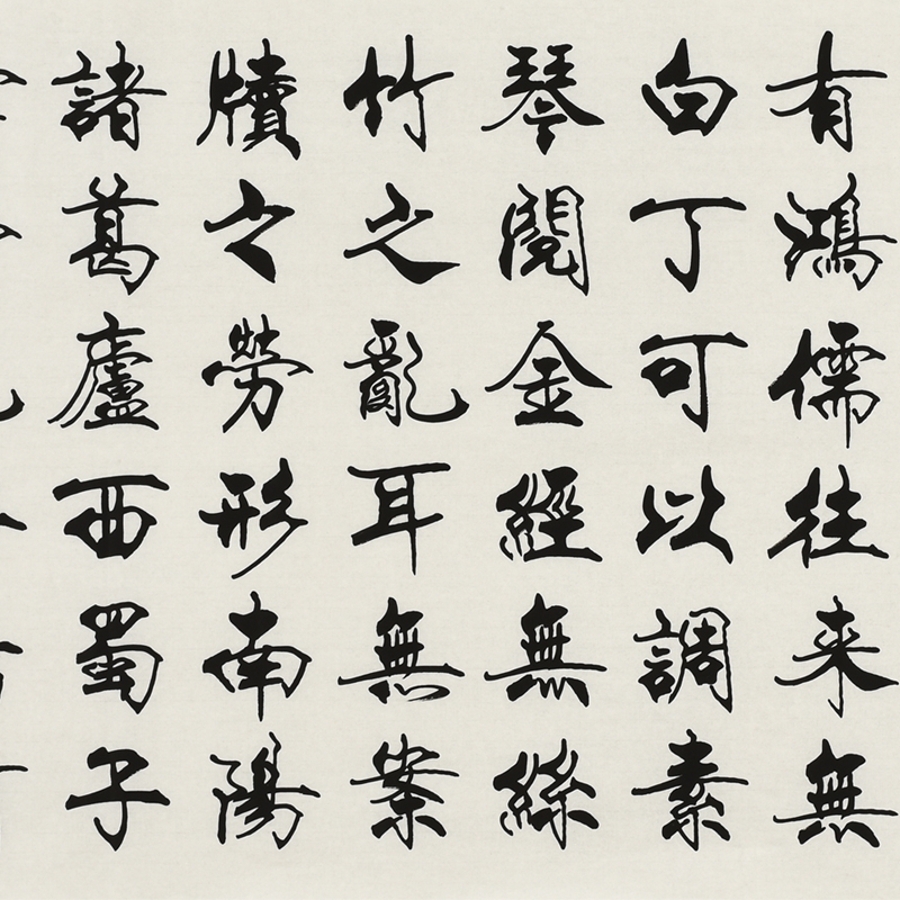 有鴻儒往来無
白丁可以調素
琴閱金經無絲
竹之亂耳無案
牘之勞形南陽
諸葛廬西蜀子